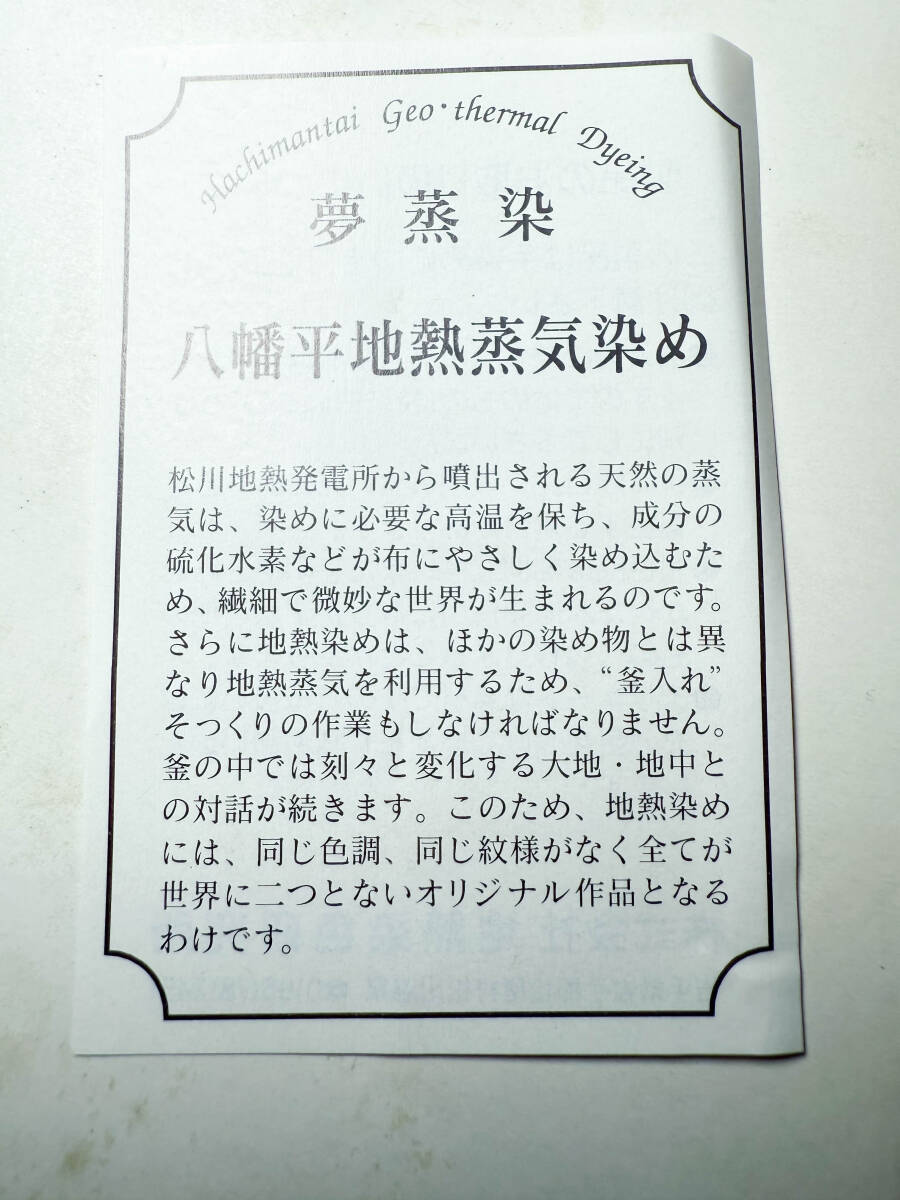 Hachimantai Geo・thermal Dyeing
夢蒸染
八幡平地熱蒸気染め
松川地熱発電所から噴出される天然の蒸
気は、染めに必要な高温を保ち、成分の
硫化水素などが布にやさしく染め込むた
め、繊細で微妙な世界が生まれるのです。
さらに地熱染めは、ほかの染め物とは異
なり地熱蒸気を利用するため、“釜入れ”
そっくりの作業もしなければなりません。
釜の中では刻々と変化する大地・地中と
の対話が続きます。このため、地熱染め
には、同じ色調、同じ紋様がなく全てが
世界に二つとないオリジナル作品となる
わけです。